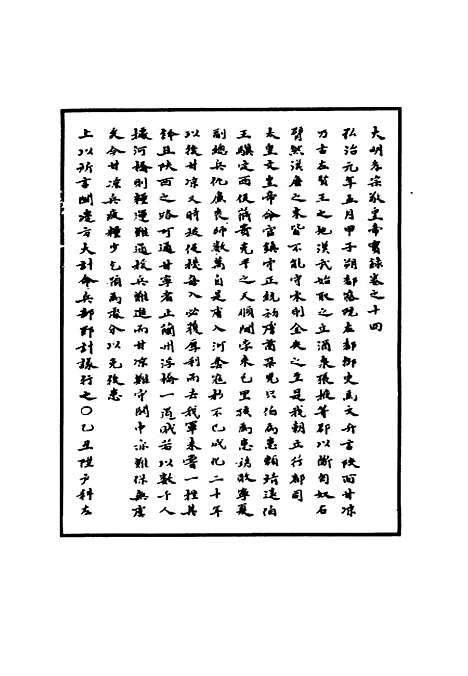 大明孝宗敬皇帝實錄卷之十四
弘治元年五月甲子朔都察院左都御史馬文升言陝西甘涼
乃古右賢王之地漢武始取之立酒泉張掖等郡以斷匈奴右
臂然漢唐之末皆不能守宋則金夾之至是我朝立行都司
太皇文皇帝命官鎮守正統初虜酋朵兒只伯為患賴靖遠伯
王驥定西侯蔣貴克平之天順間孛來毛里孩為患詔敕寧夏
副總兵仇廉喪師數萬自是虜入河套寇抄不已成化二十年
以後甘涼又時被侵擾每入必獲厚利而去我軍未嘗一挫其
鋒且陝西之路可通甘寧者止蘭州浮橋一道賊若以數千人
據河橋則糧運難通援兵難進而甘涼難守關中亦難保無虞
矣今甘涼兵疲糧少乞預為處分以免後患
上以所言關邊方大計命兵部即計議行之○乙丑陞戶科左